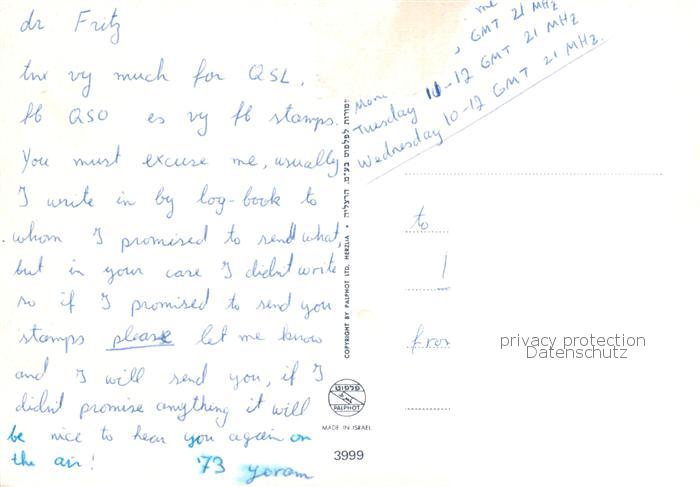 dr Fritz
tnx vy much for QSL.
fb QSO es vy fb stamps.
You must excuse me, usually
I write in by log-book to
whom I promised to send what,
but in your case I didn't write
so if I promised to send you
stamps please let me know
and I will send you, if I
didn't promise anything it will
be nice to hear you again on
the air! '73 yoram
me
GMT 21 MHz
Tuesday 10-12 GMT 21 MHz
Wednesday 10-12 GMT 21 MHz.
COPYRIGHT BY PALPHOT LTD. HERZLIA •
בע"מ. הרצליה
to
from
privacy protection
Datenschutz
פלפוט
PALPHOT
MADE IN ISRAEL
3999